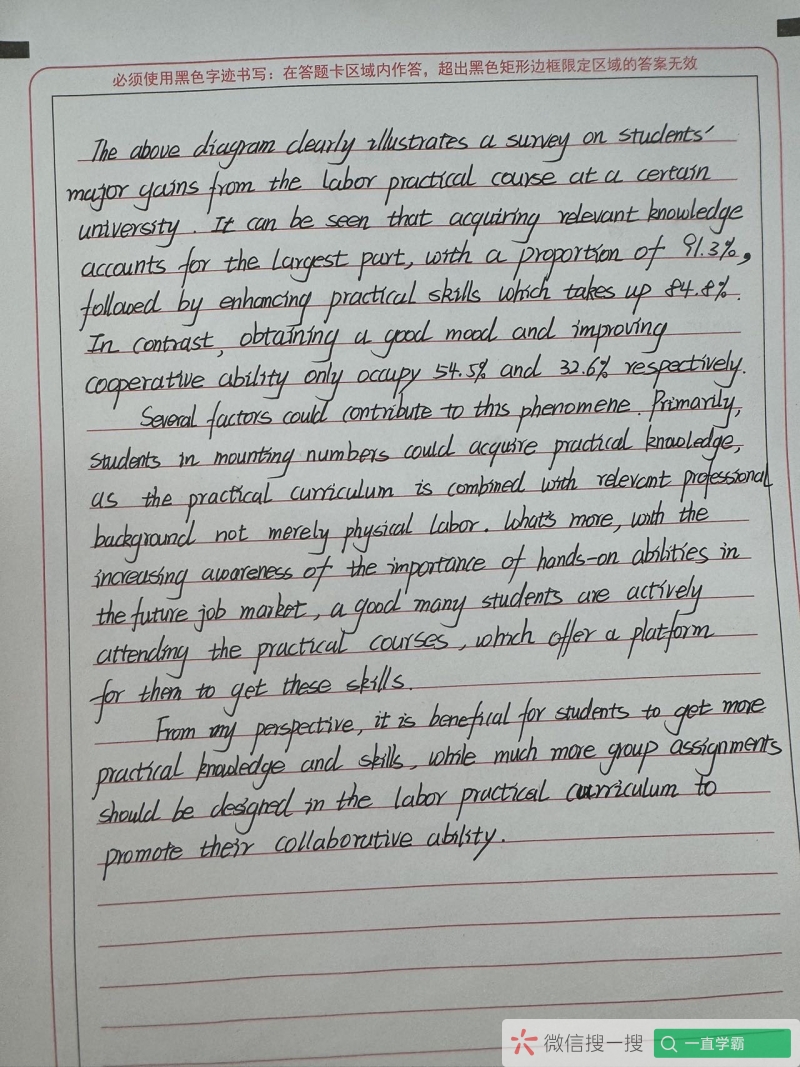 必须使用黑色字迹书写：在答题卡区域内作答，超出黑色矩形边框限定区域的答案无效
The above diagram clearly illustrates a survey on students'
major gains from the labor practical course at a certain
university. It can be seen that acquiring relevant knowledge
accounts for the largest part, with a proportion of 91.3%,
followed by enhancing practical skills which takes up 84.8%.
In contrast, obtaining a good mood and improving
cooperative ability only occupy 54.5% and 32.6% respectively.
Several factors could contribute to this phenomene. Primarily,
students in mounting numbers could acquire practical knowledge,
as the practical curriculum is combined with relevant professional
background not merely physical labor. What's more, with the
increasing awareness of the importance of hands-on abilities in
the future job market, a good many students are actively
attending the practical courses, which offer a platform
for them to get these skills.
From my perspective, it is benefical for students to get more
practical knowledge and skills, while much more group assignments
should be designed in the labor practical curriculum to
promote their collaborative ability.
微信搜一搜 一直学霸